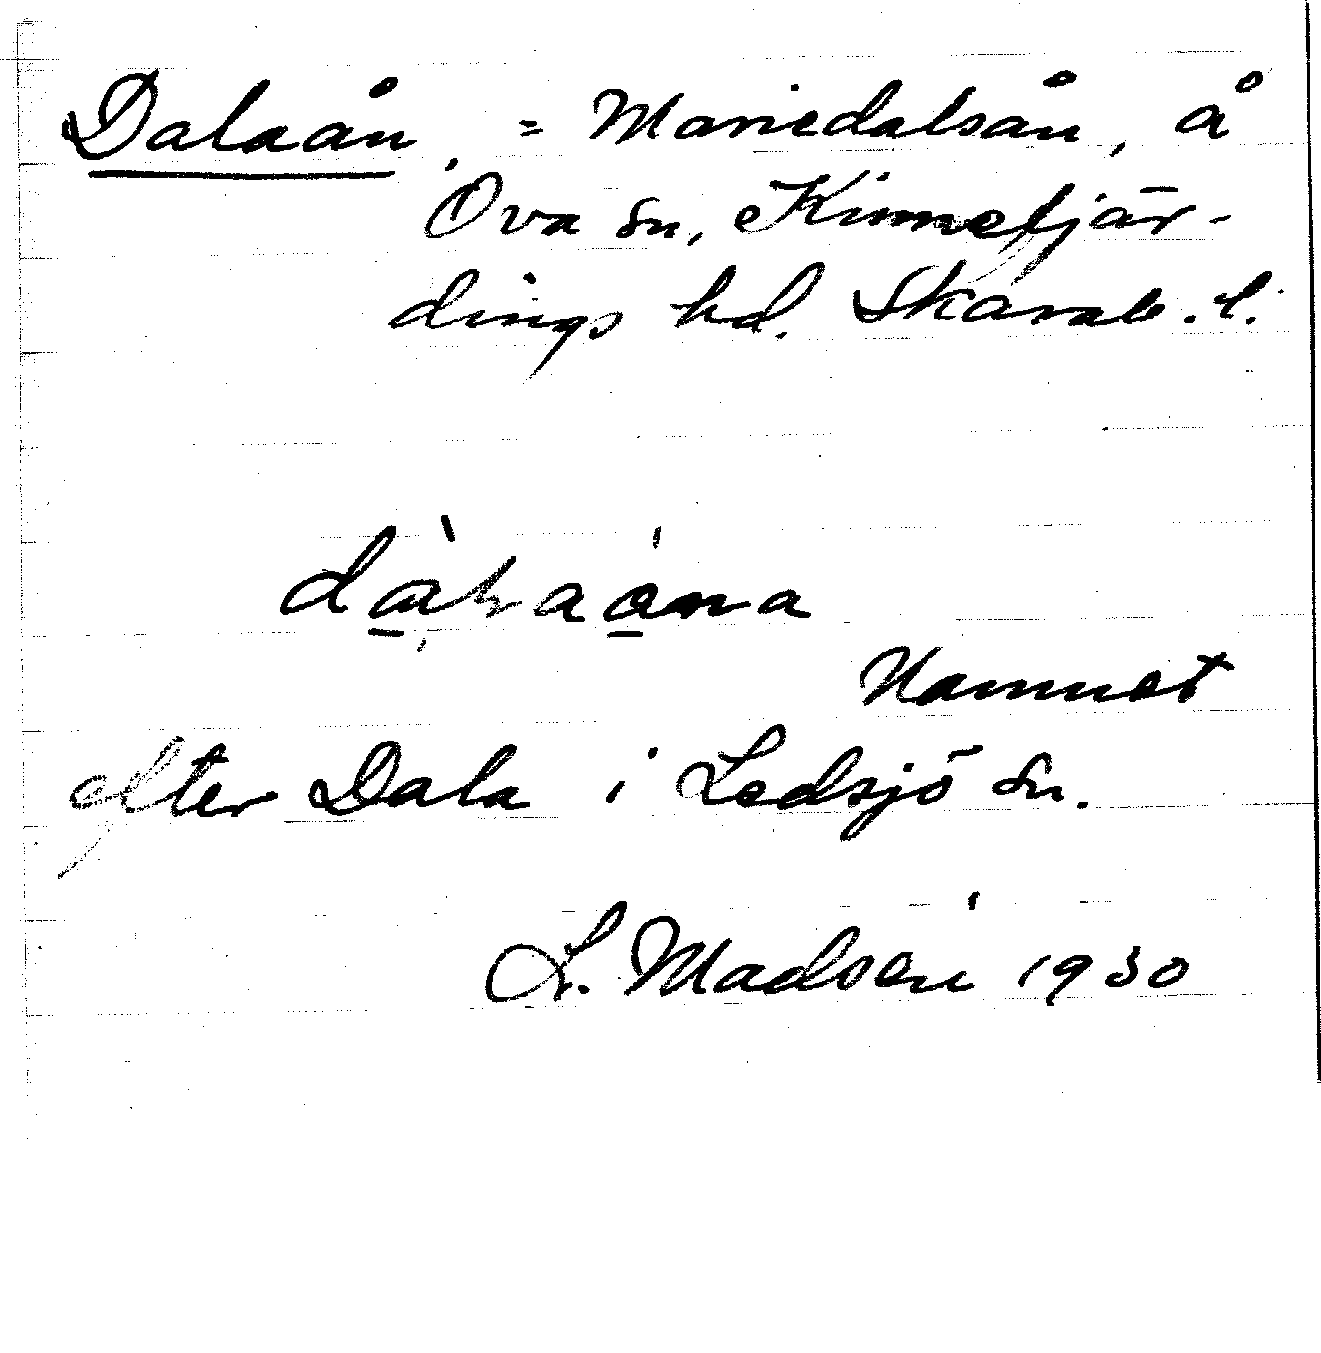 Dalaån, = Mariedalsån, å
Ova sn, Kinnefjär-
dings hd. Skarab. l.
Namnet
efter Dala i Ledsjö sn.
L. Madsén 1930